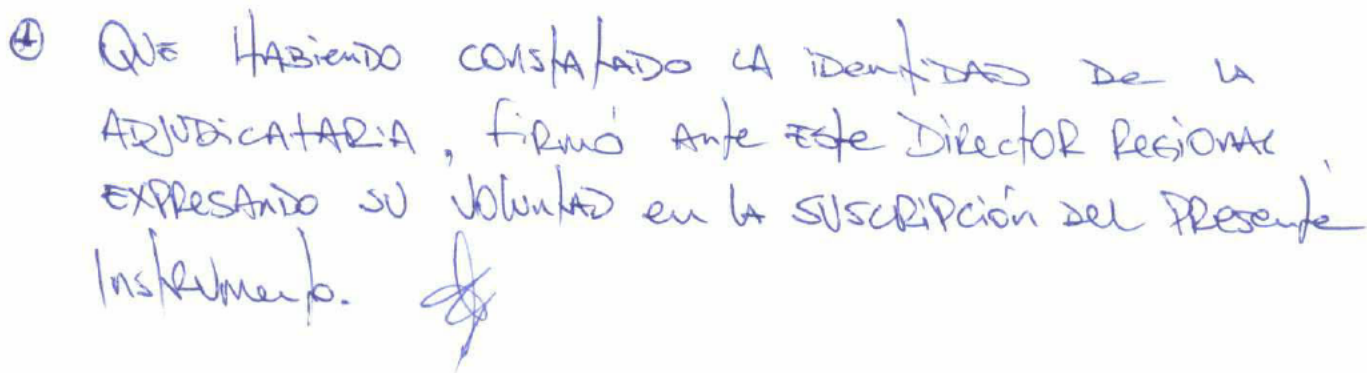 ① QUE HABIENDO CONSTATADO LA IDENTIDAD DE LA
ADJUDICATARIA, FIRMÓ ANTE ESTE DIRECTOR REGIONAL,
EXPRESANDO SU VOLUNTAD EN LA SUSCRIPCIÓN DEL PRESENTE
INSTRUMENTO.